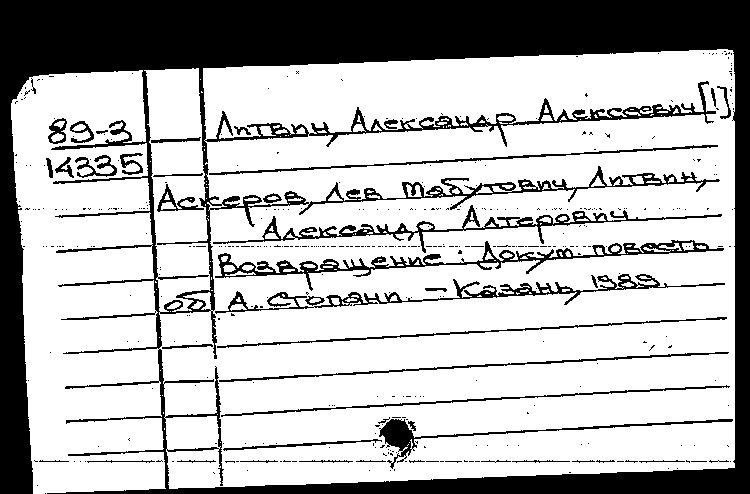 89-3 Литвин, Александр Алексеевич [1]
14335
Аскеров, Лев Мабутович, Литвин,
Александр Алтерович.
Возвращение : Докум. повесть
об А. Стопани. – Казань, 1989.